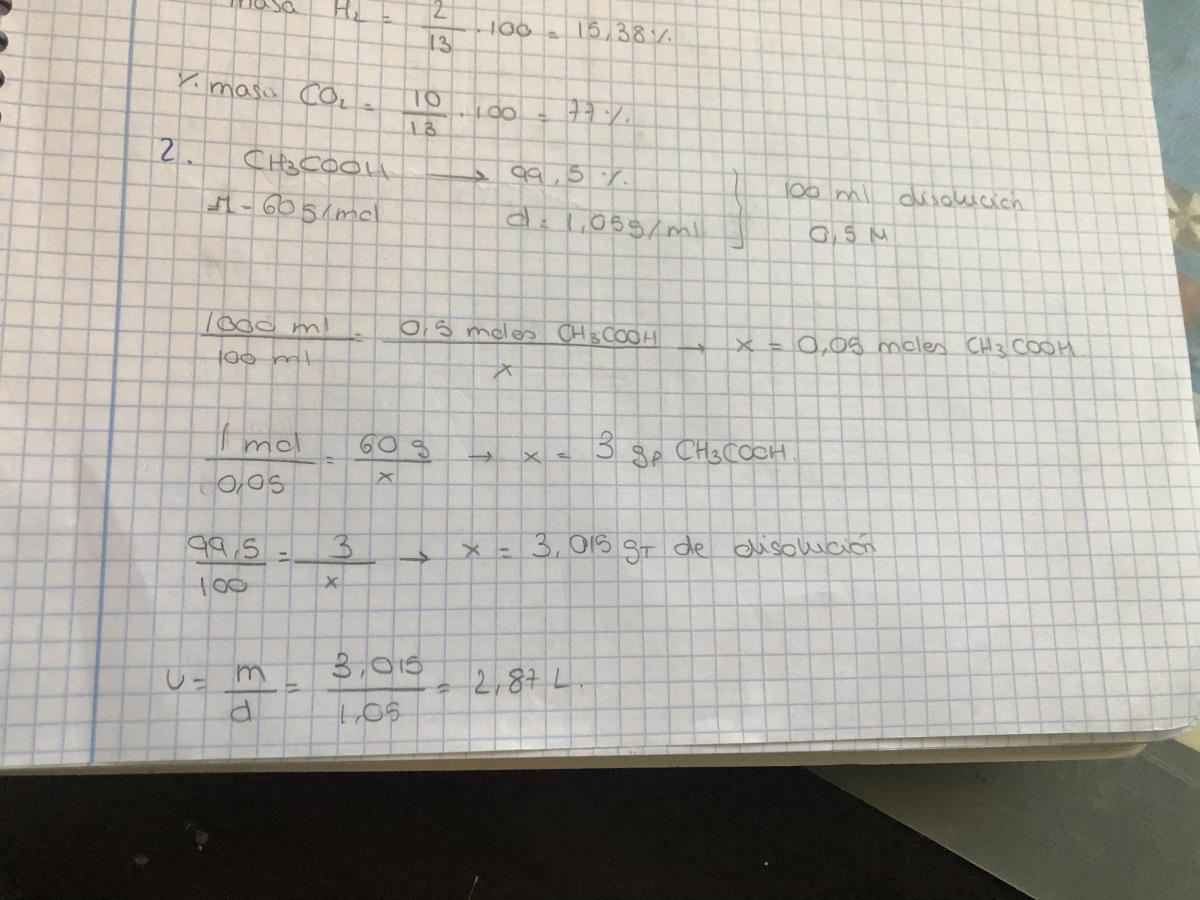 masa H₂ = 2/13 · 100 = 15,38 %
% masa CO₂ = 10/13 · 100 = 77 %
2. CH3COOH → 99,5 % } 100 ml disolución
M = 60 g/mol d = 1,05 g/ml 0,5 M
1000 ml/100 ml = 0,5 moles CH3COOH/x → x = 0,05 moles CH3COOH
1 mol/0,05 = 60 g/x → x = 3 gr CH3COOH.
99,5/100 = 3/x → x = 3,015 gr de disolución
V = m/d = 3,015/1,05 = 2,87 L.